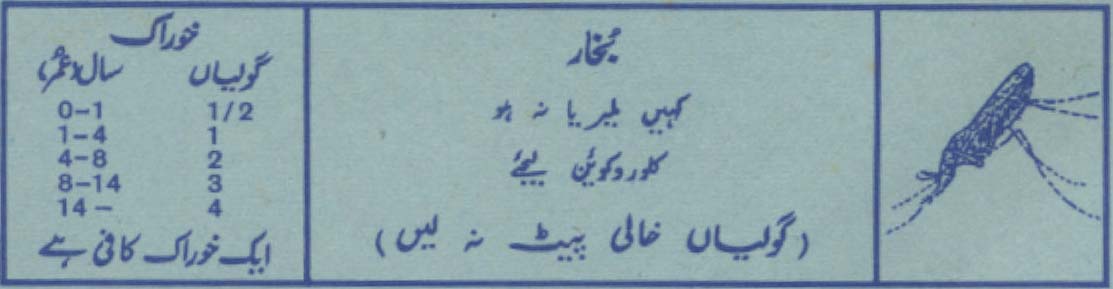 خوراک
گولیاں سال (عمر)
1/2 0-1
1 1-4
2 4-8
3 8-14
4 14-
ایک خوراک کافی ہے
بخار
کہیں ملیریا نہ ہو
کلوروکوئن لیجئے
(گولیاں خالی پیٹ نہ لیں)